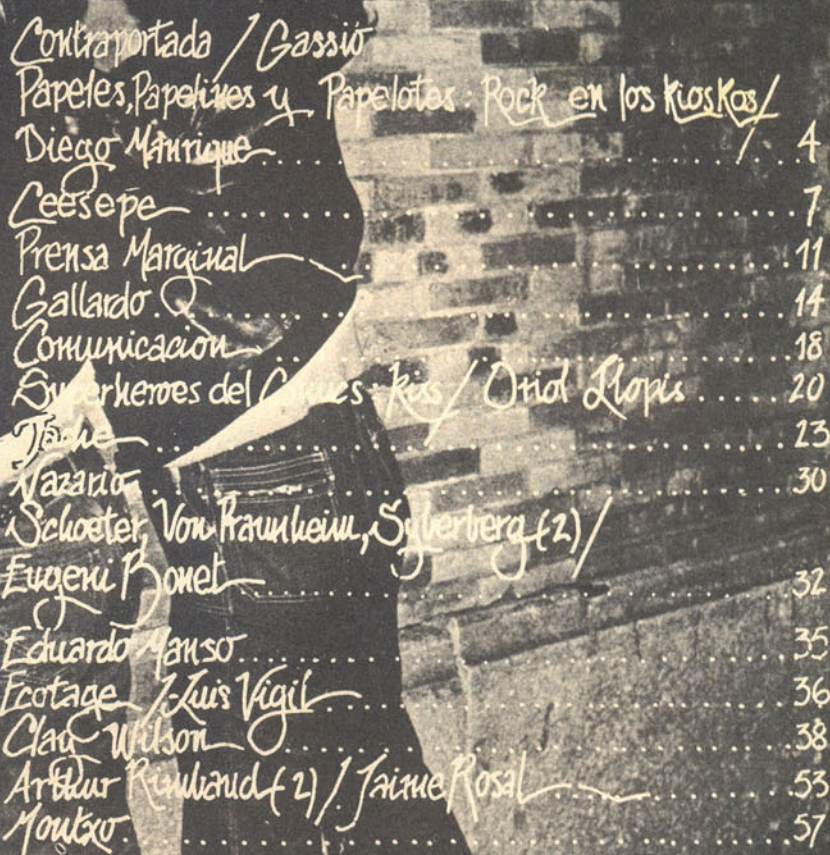 Contraportada / Gassió
Papeles, Papelines y Papelotes: Rock en los Kioskos /
Diego Manrique 4
Ceesepe 7
Prensa Marginal 11
Gallardo 14
Comunicacion 18
Superheroes del Comics: Kiss / Oriol Llopis 20
23
Nazario 30
Schoeter, Von Praunheim, Syberberg (2) /
Eugeni Bonet 32
Eduardo Manso 35
Ecotage / J. Luis Vigil 36
Clay Wilson 38
Arthur Rimbaud (2) / Jaime Rosal 53
Montxo 57